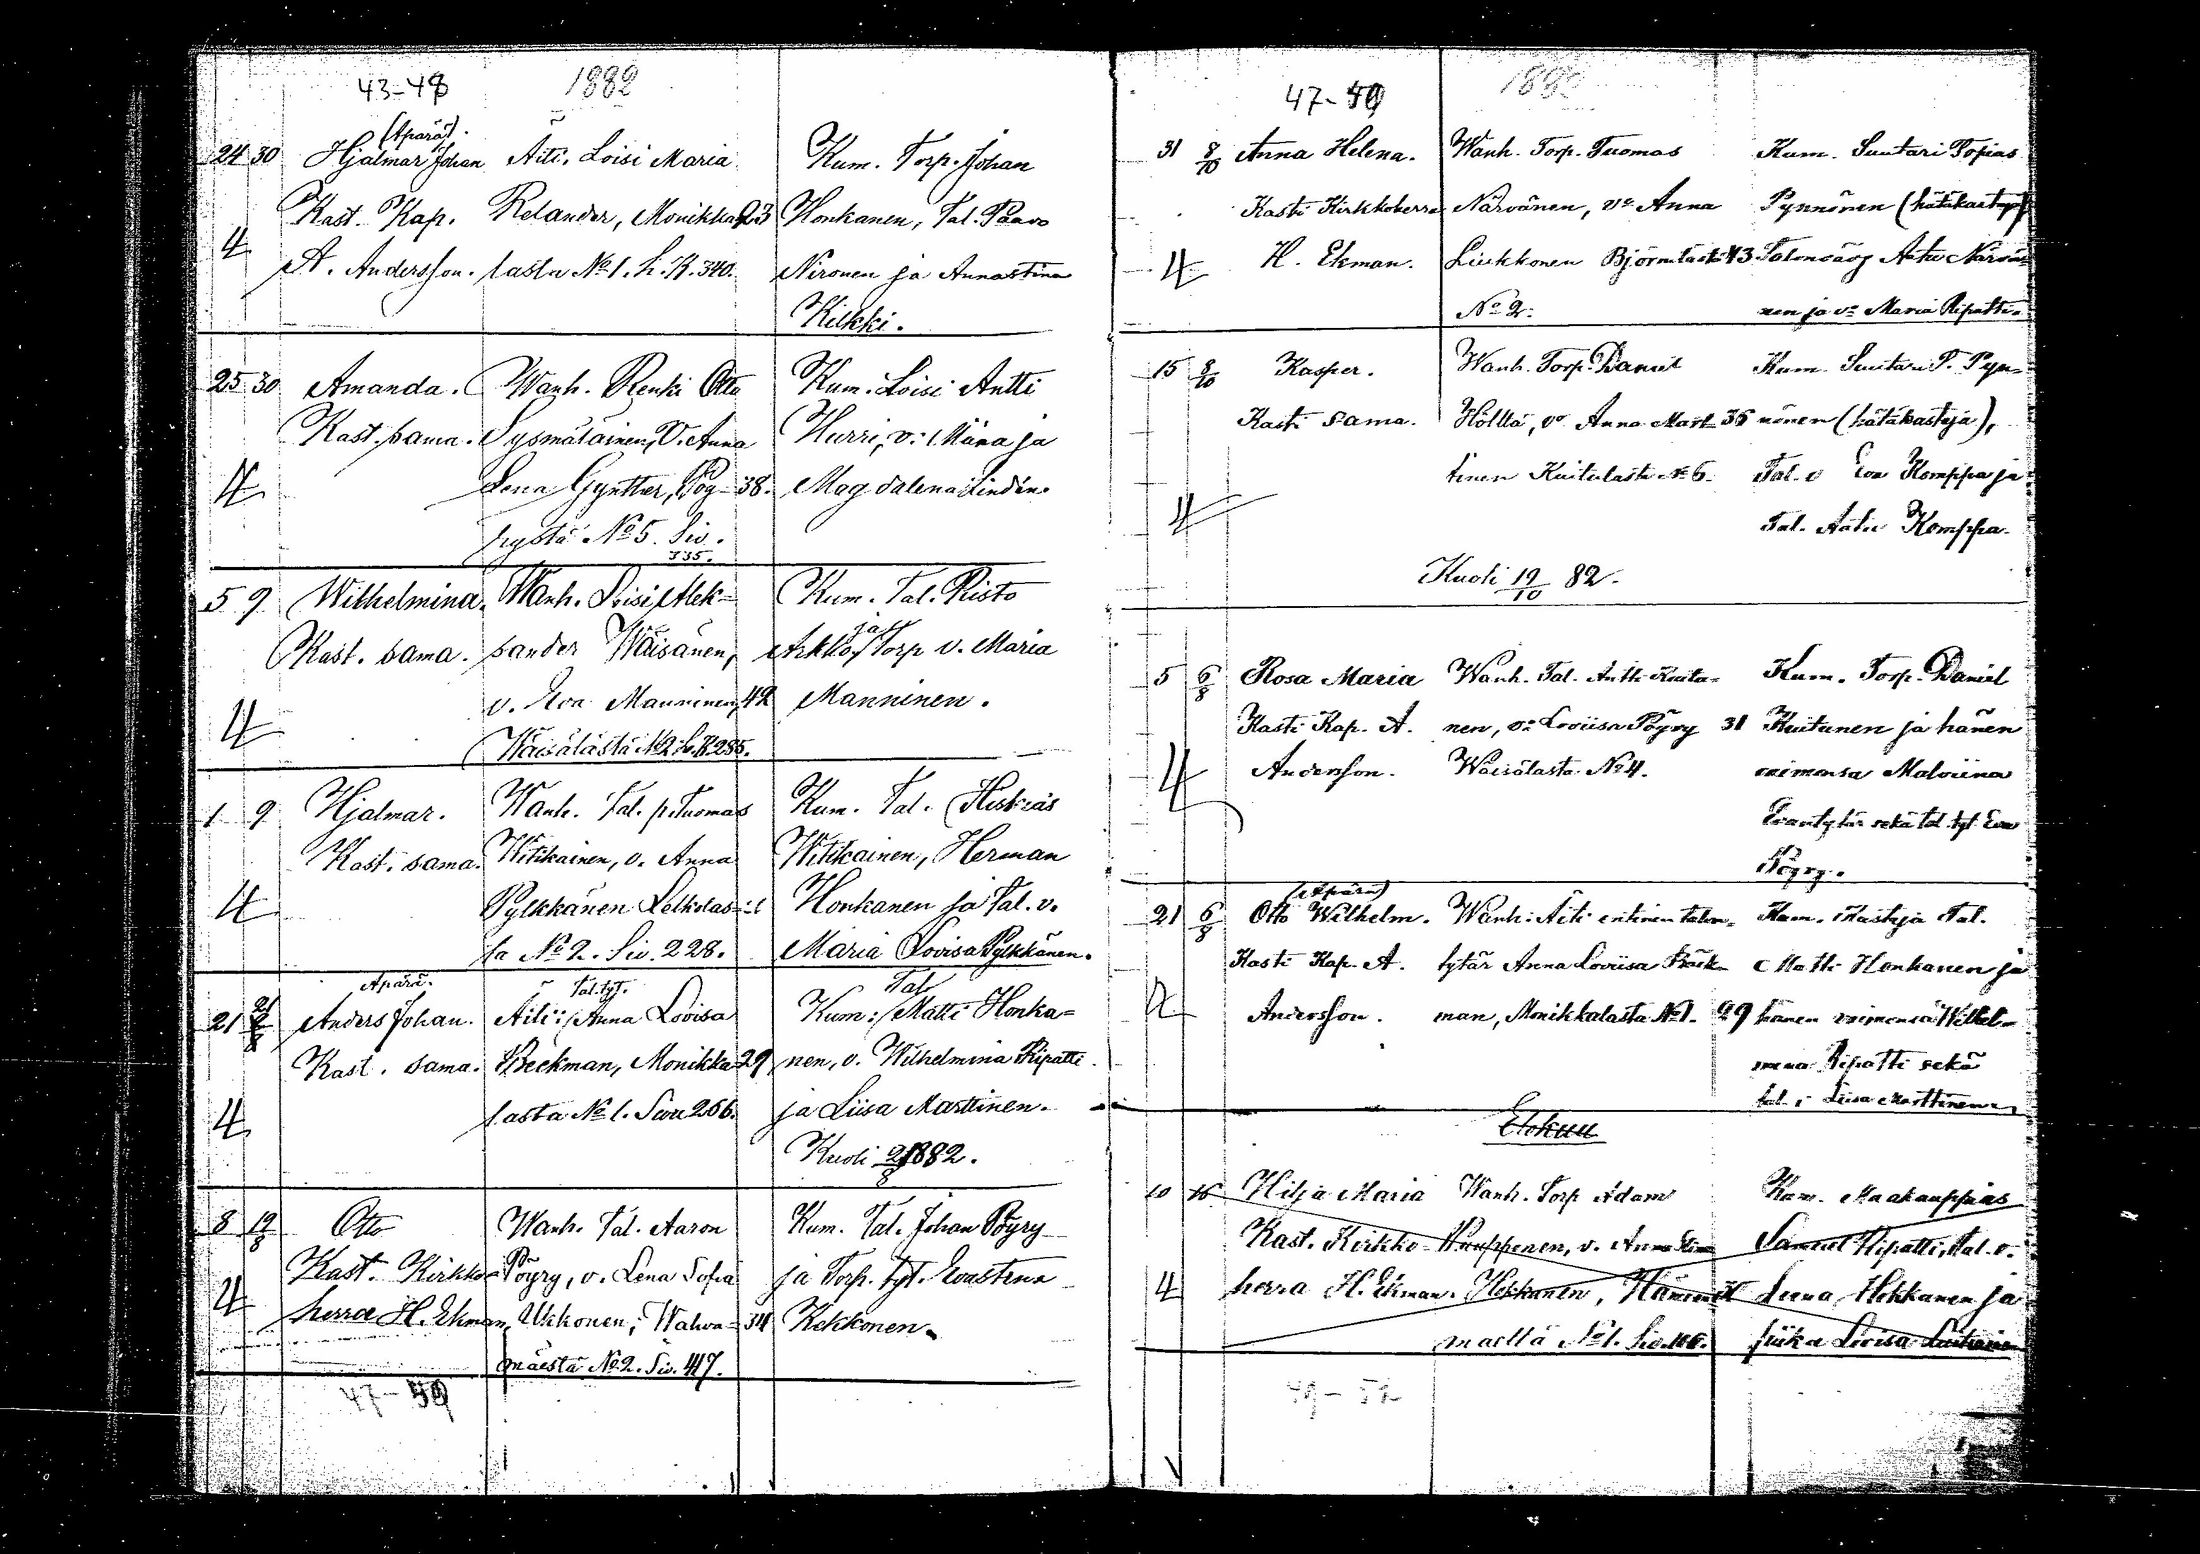 43-48 1882
(Äpärä).
24 30 Hjalmar Johan Äiti. Loisi Maria Kum. Torp. Johan
Kast. Kap. Relander, Monikka- 23 Honkanen, Tal. Paavo
4 A. Andersson. lasta No 1. L.K. 340. Nironen ja Annastina
Kilkki.
25 30 Amanda. Wanh. Renki Otto Kum. Loisi Antti
Kast. sama. Sysmäläinen, V. Anna Hurri, v. Maria ja
4 Lena Gynther, Pög- 38. Magdalena Lindén.
hystä No 5. Siv.
335.
5 9 Wilhelmina. Wanh. Loisi Alek- Kum. Tal. Risto
Kast. sama. sander Wäisänen, Arkko, ja Torp v. Maria
4 v. Eva Manninen, 42 Manninen.
Wäisälästä No 2 L.K 285.
1 9 Hjalmar. Wanh. Tal. p. Tuomas Kum. Tal. Heskias
Kast. sama. Witikainen, v. Anna Witikainen, Herman
4 Pylkkänen Lelkolas- Honkanen ja Tal. v.
ta No 2. Siv. 228. Maria Lovisa Pylkkänen.
Äpärä. Tal. tyt. Tal.
21 Anders Johan. Äiti: Anna Lovisa Kum: Matti Honka=
Kast. sama. Beckman, Monikka- 29 nen, v. Wilhelmina Ripatti
4 lasta No 1. Sivu 266. ja Liisa Marttinen.
Kuoli 2/8 1882.
8 19/8 Otto Wanh. Tal. Aaron Kum. Tal. Johan Pöyry
Kast. Kirkko- Pöyry, v. Lena Sofia ja Torp. tyt. Evastina
4 herra H. Ekman, Ukkonen, Walwa- 34 Kekkonen.
mäestä No 2. Siv. 417.
47-49
47-49 1882
31 8/10 Anna Helena. Wanh. Torp. Tuomas Kum. Suutari Topias
Kasti Kirkkoherra Närvänen, vo Anna Pynnönen (hätäkastaja)
4 H. Ekman. Liukkonen 43 Aatu Närvä-
No 2. nen ja vo Maria Ripatti.
15 8/10 Kasper. Wanh. Torp. Daniel Kum. Suutari T. Pyn-
Kasti sama. Hölttä, vo Anna Mart- 35 nönen (hätäkastaja),
tinen Kuitulasta No 6. Tal. v Eva Komppa ja
4 Tal. Aatu Komppa.
Kuoli 19/10 82.
5 6/8 Rosa Maria Wanh. Tal. Antti Kuitu- Kum. Torp. Daniel
Kasti Kap. A. nen, vo Loviisa Pöyry 31 Kuitunen ja hänen
4 Andersson. Wäisälästä No 4. vaimonsa Malviina
sekä tal. tyt. Eva
Pöyry.
(Äpärä)
21 6/8 Otto Wilhelm. Wanh: Äiti entinen talon- Kum. Kastaja Tal.
Kasti Kap. A. tytär Anna Loviisa Bäck- Matti Honkanen ja
4 Andersson. man, Monikkalasta No 1. 29 hänen vaimonsa Wilhel-
mina Ripatti sekä
tal. i Liisa Marttinen.
Elokuu
10 16 Hilja Maria Wanh. Torp Adam Kum. Maakauppias
Kast. Kirkko- Puuppenen, v. Anna Samuel Ripatti, Tal. v.
4 herra H. Ekman. Hekkanen, Leena Hekkanen ja
maeltä No 1. piika Lovisa
49-52